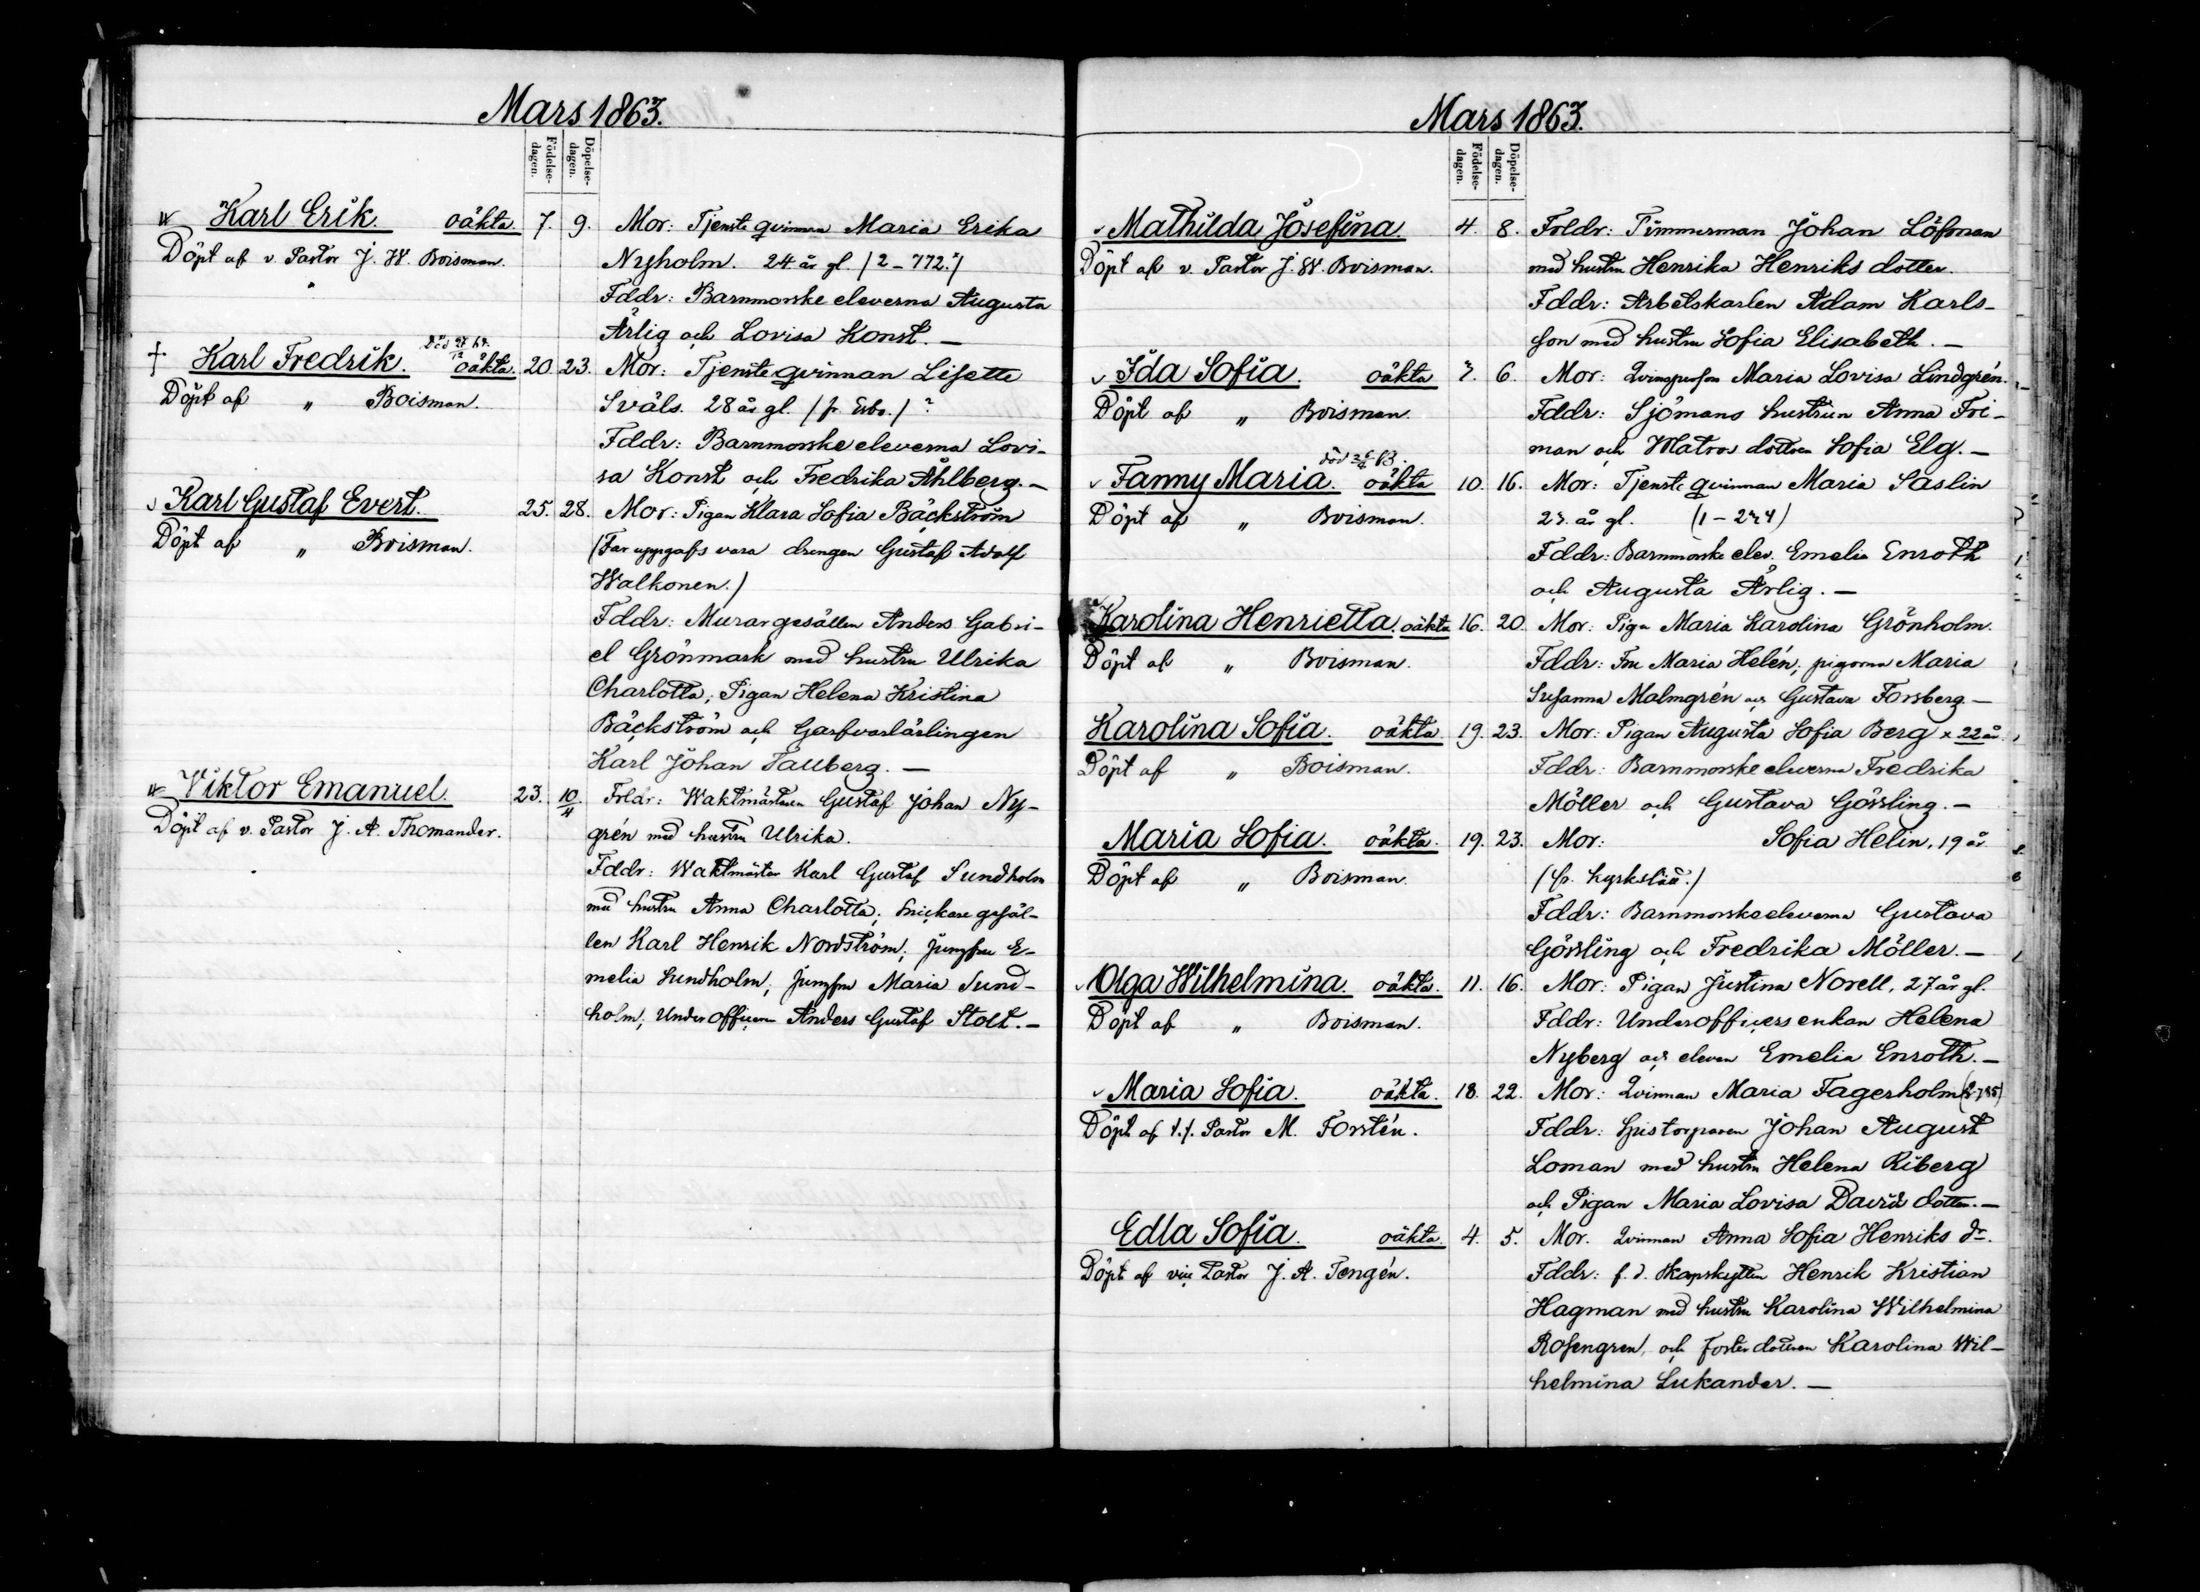 Mars 1863.
Födelse-dagen. Döpelse-dagen.
Karl Erik. oäkta. 7. 9. Mor: Tjenste qvinnan Maria Erika
Döpt af v. Pastor J. W. Boisman. Nyholm. 24 år gl. (2-772.)
Fddr: Barnmorske eleverna Augusta
Årlig och Lovisa Konst. —
† Karl Fredrik. oäkta. 20. 23. Mor: Tjenste qvinnan Lisette
Döpt af " Boisman. Sväls. 28 år gl. (fr. Esbo.) ?
Fddr: Barnmorske eleverna Lovi-
sa Konst och Fredrika Åhlberg. —
Karl Gustaf Evert. 25. 28. Mor: Pigan Klara Sofia Bäckström
Döpt af " Boisman. (Far uppgafs vara drengen Gustaf Adolf
Walkonen.)
Fddr: Murargesällen Anders Gabri-
el Grönmark med hustru Ulrika
Charlotta; Pigan Helena Kristina
Bäckström och Garfvarlärlingen
Karl Johan Tauberg. —
Viktor Emanuel. 23. 10/4. Frldr: Waktmästaren Gustaf Johan Ny-
Döpt af v. Pastor J. A. Thomander. grén med hustru Ulrika.
Fddr: Waktmästar Karl Gustaf Sundholm
med hustru Anna Charlotta; Snickare gesäl-
len Karl Henrik Nordström; Jungfru E-
melia Sundholm; Jungfru Maria Sund-
holm; Underofficeren Anders Gustaf Stolt. —
Mars 1863.
Födelse-dagen. Döpelse-dagen.
Mathilda Josefina. 4. 8. Frldr: Timmerman Johan Löfman
Döpt af v. Pastor J. W. Boisman. med hustru Henrika Henriks dotter.
Fddr: Arbetskarlen Adam Karls-
son med hustru Sofia Elisabeth. —
Ida Sofia. oäkta 3. 6. Mor: Qvinsperson Maria Lovisa Lindgrén.
Döpt af " Boisman. Fddr: Sjömans hustrun Anna Fri-
man och Matros dottren Sofia Elg. —
Fanny Maria. oäkta 10. 16. Mor: Tjenste qvinnan Maria Saslin
Döpt af " Boisman. 23. år gl. (1-274)
Fddr: Barnmorske elev. Emelia Enroth
och Augusta Årlig. —
Karolina Henrietta. oäkta 16. 20. Mor: Piga Maria Karolina Grönholm.
Döpt af " Boisman. Fddr: Fru Maria Helén; pigorna Maria
Susanna Malmgrén och Gustava Forsberg. —
Karolina Sofia. oäkta. 19. 23. Mor: Pigan Augusta Sofia Berg x 22 år.
Döpt af " Boisman. Fddr: Barnmorske eleverna Fredrika
Möller och Gustava Gössling. —
Maria Sofia. oäkta. 19. 23. Mor: Sofia Helin, 19 år
Döpt af " Boisman. (fr. Kyrkslätt.)
Fddr: Barnmorskeeleverna Gustava
Gössling och Fredrika Möller. —
Olga Wilhelmina. oäkta. 11. 16. Mor: Pigan Justina Norell, 27 år gl.
Döpt af " Boisman. Fddr: Underofficers enkan Helena
Nyberg och eleven Emelia Enroth. —
Maria Sofia. oäkta. 18. 22. Mor: Qvinnan Maria Fagerholm (2-785)
Döpt af t.f. Pastor M. Forstén. Fddr: Johan August
Loman med hustru Helena Riberg
och Pigan Maria Lovisa David dotter. —
Edla Sofia. oäkta. 4. 5. Mor. Qvinnan Anna Sofia Henriks dr.
Döpt af vice Pastor J. A. Tengén. Fddr: f. d. Skarpskytten Henrik Kristian
Hagman med hustru Karolina Wilhelmina
Rosengren, och fosterdottren Karolina Wil-
helmina Lukander. —